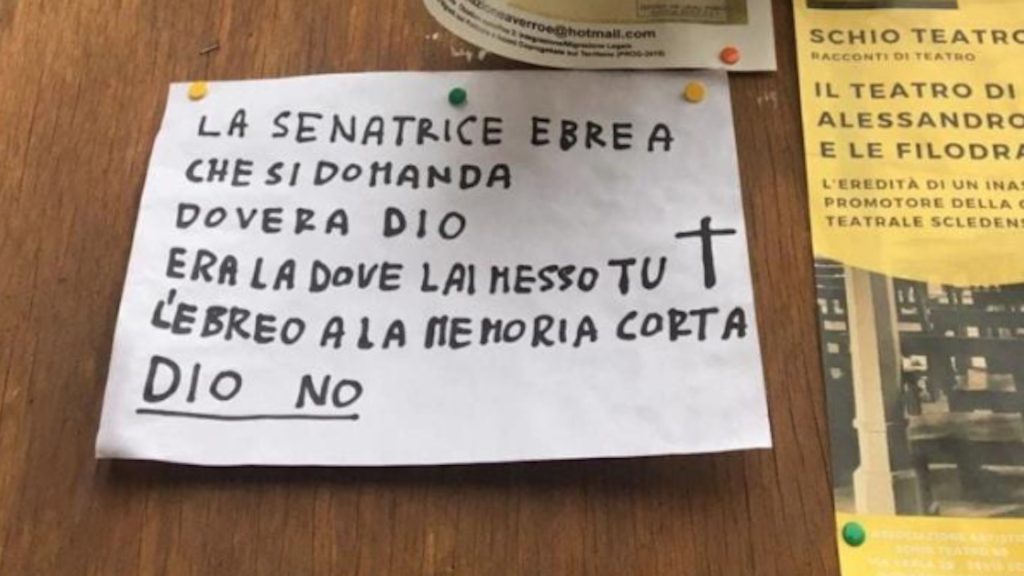 azioneaverroe@hotmail.com
LA SENATRICE EBREA
CHE SI DOMANDA
DOVERA DIO
ERA LA DOVE LAI MESSO TU
L'EBREO A LA MEMORIA CORTA
DIO NO
SCHIO TEATRO
RACCONTI DI TEATRO
IL TEATRO DI
ALESSANDRO
E LE FILODRA
L'EREDITÀ DI UN INAS
PROMOTORE DELLA
TEATRALE SCLEDENS
ASSOCIAZIONE ARTISTI
SCHIO TEATRO